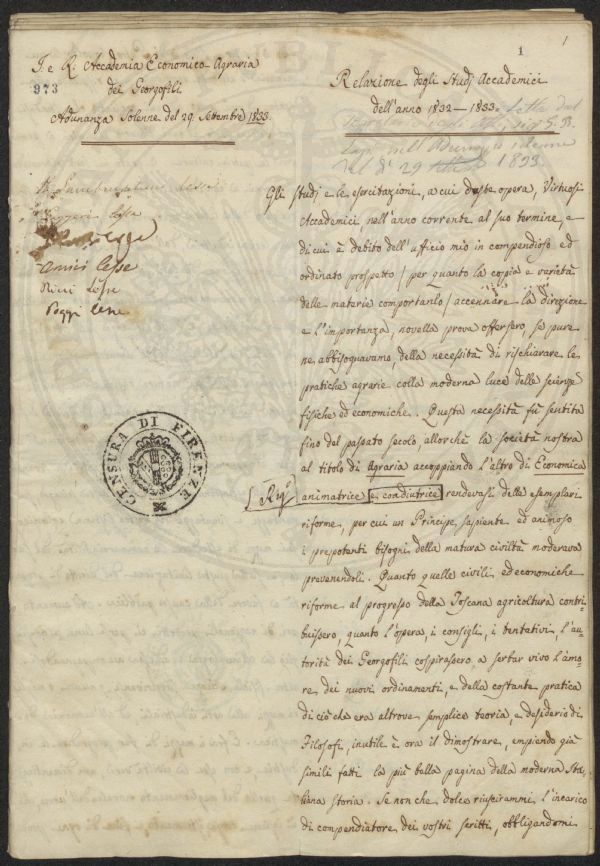 I. e R. Accademia Economico-Agraria
973
dei Georgofili
Adunanza Solenne del 29. Settembre 1833.
1
1
Relazione degli Studj Accademici
dell'anno 1832–1833. Letta dal
nell'Adunanza solenne
del dì 29 1833
lesse
lesse
amici lesse
Ricci Lesse
Poggi lesse
CENSURA DI FIRENZE
Gli Studj e le esercitazioni, a cui deste opera, Virtuosi
Accademici, nell'anno corrente al suo termine, e
di cui è debito dell'ufficio mio in compendioso ed
ordinato prospetto / per quanto la copia e varietà
delle materie comportanlo / accennare la direzione
e l'importanza, novella prova offersero, se pure
ne abbisognavamo, della necessità di rischiarare le
pratiche agrarie colla moderna luce delle scienze
fisiche ed economiche. Questa necessità fù sentita
fino dal passato secolo, allorchè la società nostra
al titolo di Agraria accoppiando l'altro di Economica
animatrice e coadiutrice rendevasi delle esemplari
riforme, per cui un Principe, sapiente ed animoso
i prepotenti bisogni della matura civiltà moderava
prevenendoli. Quanto quelle civili, ed economiche
riforme al progresso della Toscana agricoltura contri-
buissero, quanto l'opera, i consigli, i tentativi, l'au-
torità dei Georgofili cospirassero a serbar vivo l'amo-
re dei nuovi ordinamenti, e della costante pratica
di ciò che era altrove semplice teoria, e desiderio di
Filosofi, inutile è ora il dimostrare, empiendo già
simili fatti la più bella pagina della moderna Ita-
liana Storia. Se non che dolce riuscirammi l'incarico
di compendiatore dei vostri scritti, obbligandomi